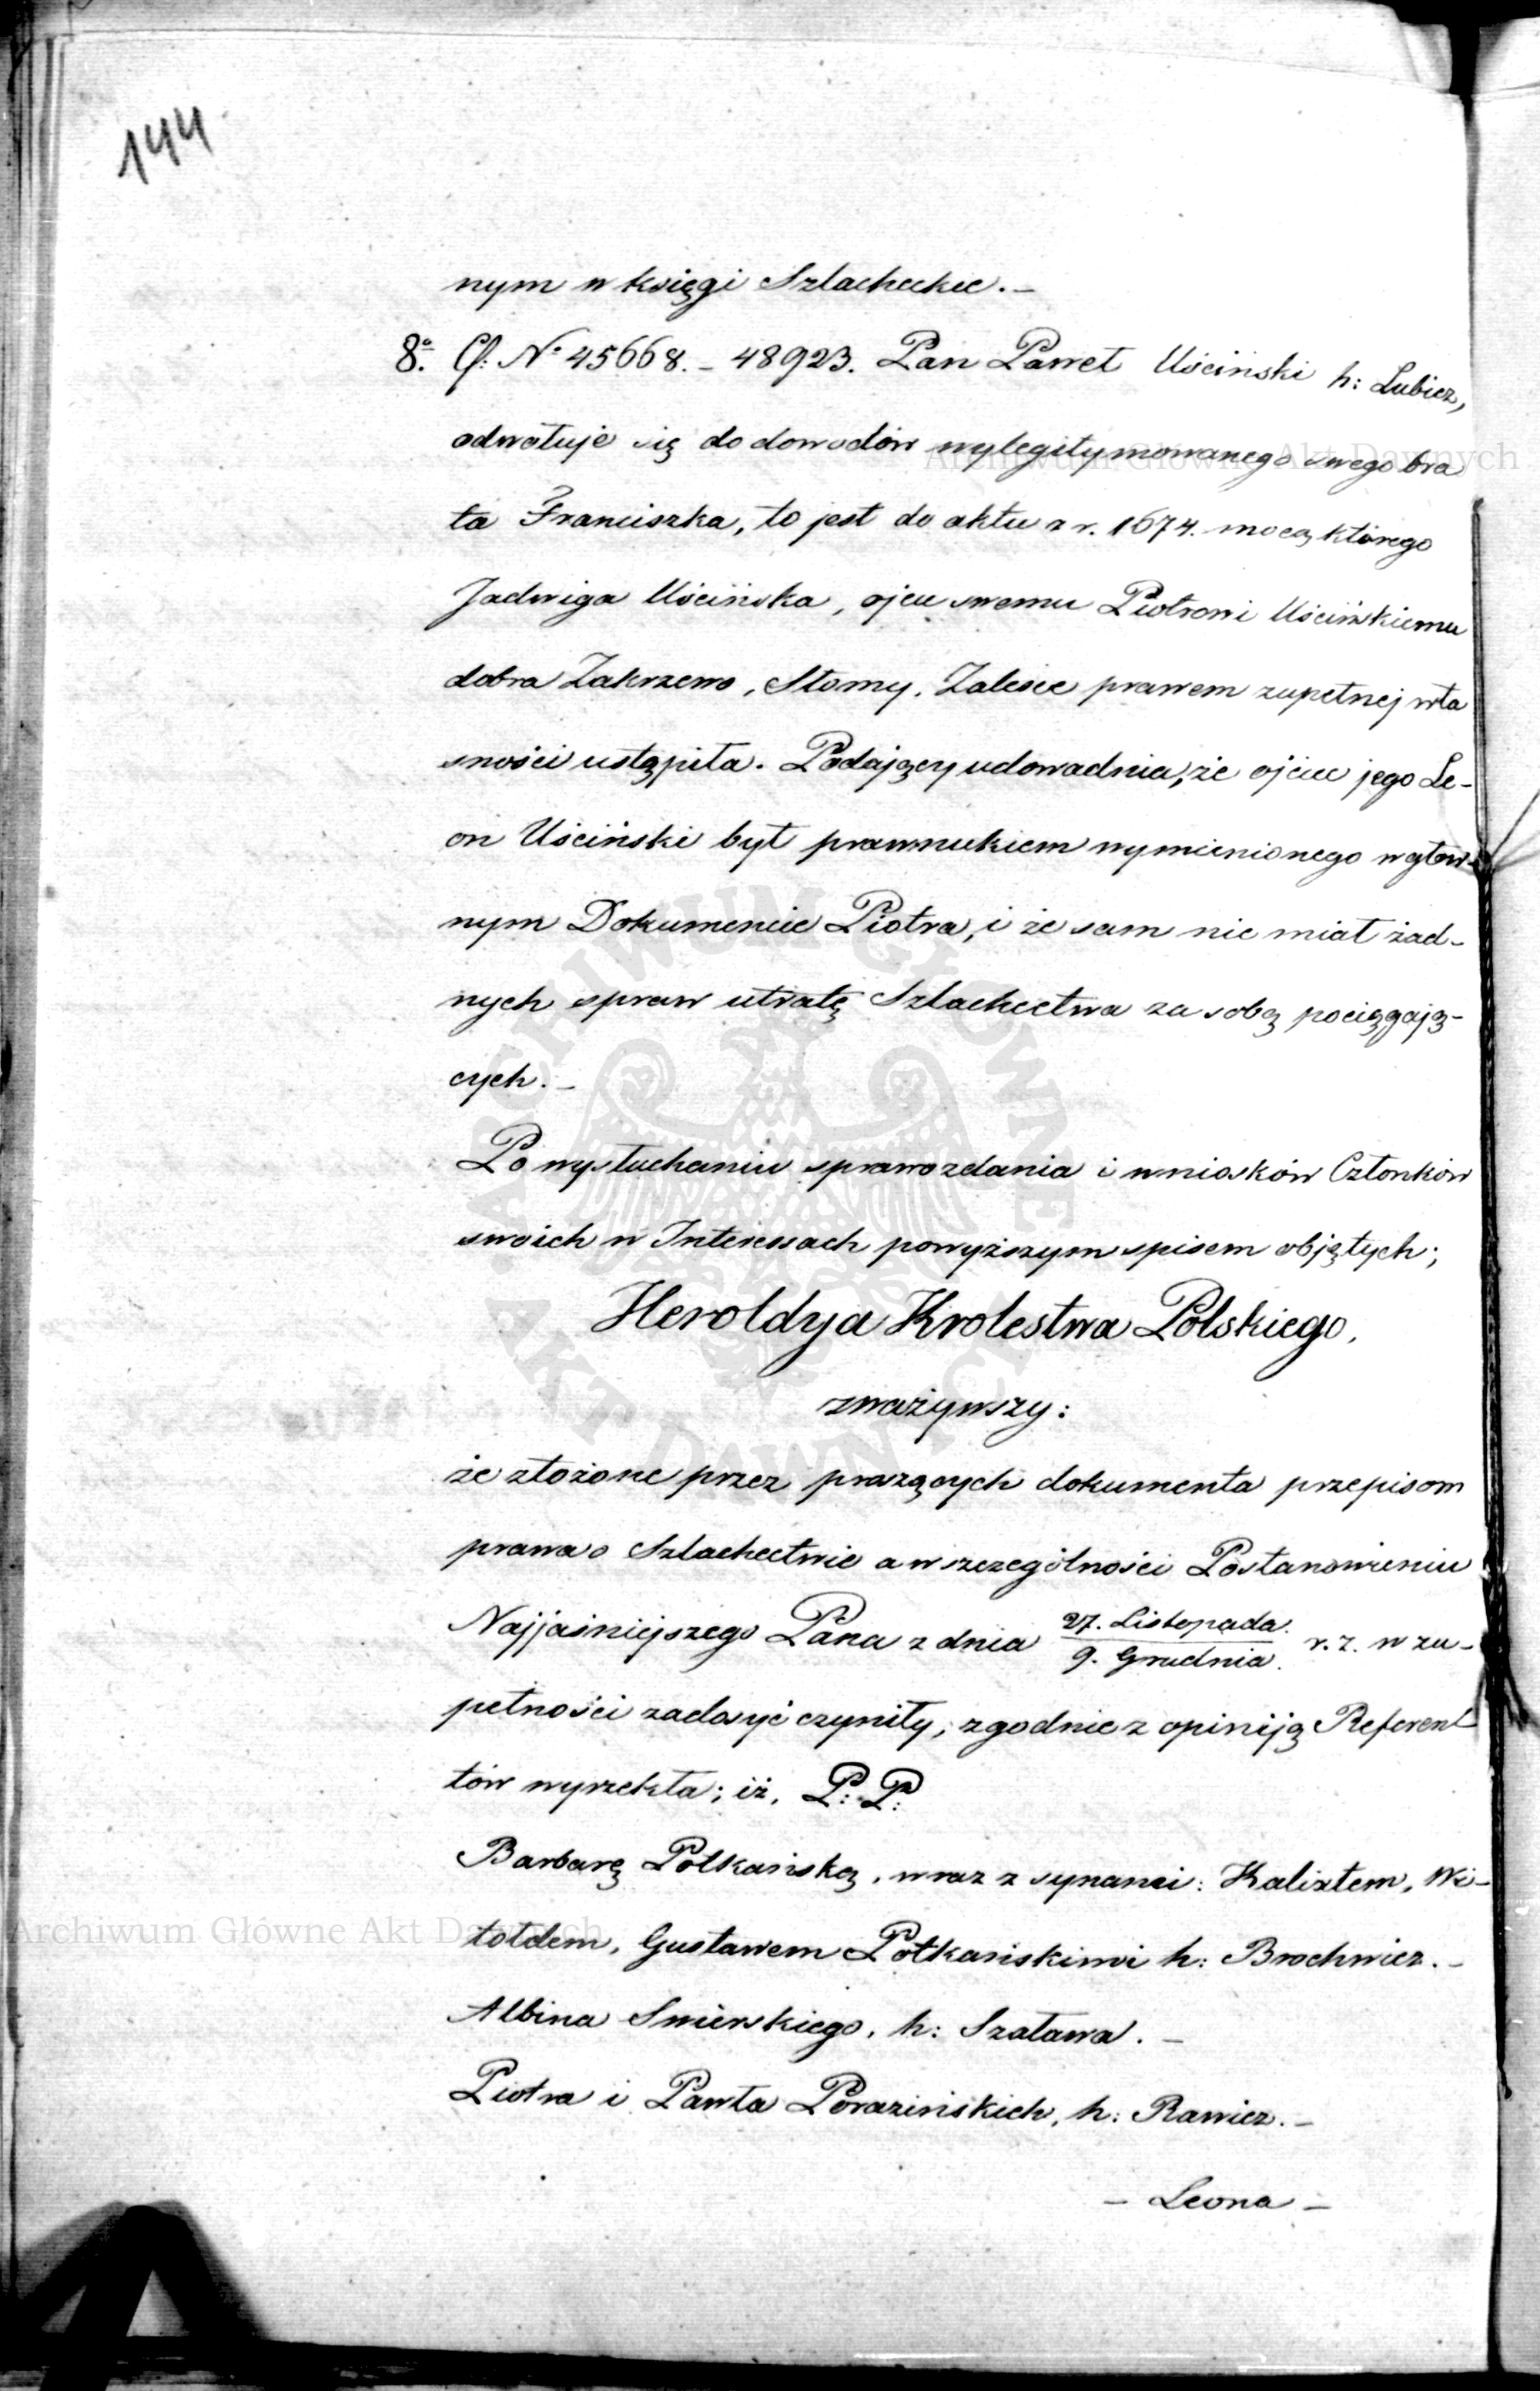 144
nym w księgi Szlacheckie. –
8º. Cf: Nº 45668. – 48923. Pan Paweł Uściński h: Lubicz,
odwołuje się do dowodów wylegitymowanego swego bra
ta Franciszka, to jest do aktu z r. 1674. mocą którego
Jadwiga Uścińska, ojcu swemu Piotrowi Uścińskiemu
dobra Zakrzewo, Słomy, Zalesie prawem zupełnej wła
sności ustąpiła. Podający udowadnia, że ojciec jego Le-
on Uściński był prawnukiem wymienionego w głów-
nym Dokumencie Piotra, i że sam nie miał żad-
nych spraw utratę Szlachectwa za sobą pociągają-
cych. –
Po wysłuchaniu sprawozdania i wniosków Członków
swoich w Interessach powyższym spisem objętych;
Heroldya Krolestwa Polskiego,
zważywszy:
że złożone przez proszących dokumenta przepisom
prawa o Szlachectwie a w szczególności Postanowieniu
Najjaśniejszego Pana z dnia 27. Listopada / 9. Grudnia r. z. w zu-
pełności zadosyć czyniły, zgodnie z opiniją Referen-
tów wyrzekła; iż, P: P:
Barbarę Potkańską, wraz z synami: Kalixtem, Wi-
toldem, Gustawem Potkańskimi h: Brochwicz. –
Albina h: Szaława. –
Piotra i Pawła Porazińskich, h: Rawicz. –
– Leona –
Archiwum Główne Akt Dawnych
Archiwum Główne Akt Dawnych
ARCHIWUM GŁÓWNE AKT DAWNYCH